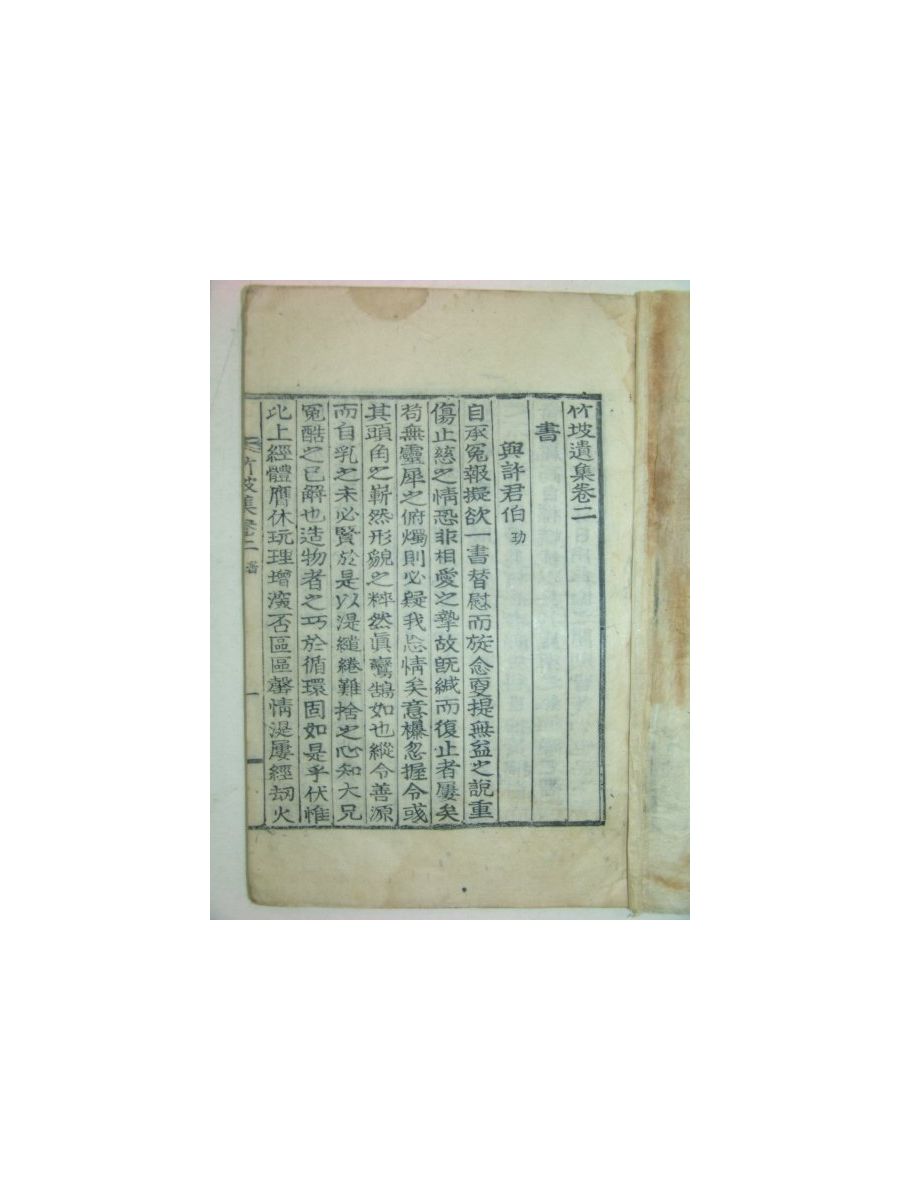 竹坡遺集卷二
書
與許君伯 功
自承冤報擬欲一書替慰而旋念更提無益之說重
傷止慈之情恐非相愛之摯故旣緘而復止者屢矣
苟無靈犀之俯燭則必疑我忘情矣意襮忽握令彧
其頭角之嶄然形貌之粹然眞鸞鵠如也縱令善源
而自乳之未必賢於是以湜繾綣難捨之心知大兄
冤酷之已解也造物者之巧於循環固如是乎伏惟
比上經體膺休玩理增演否區區罄情湜屢經劫火
竹坡集卷二 一